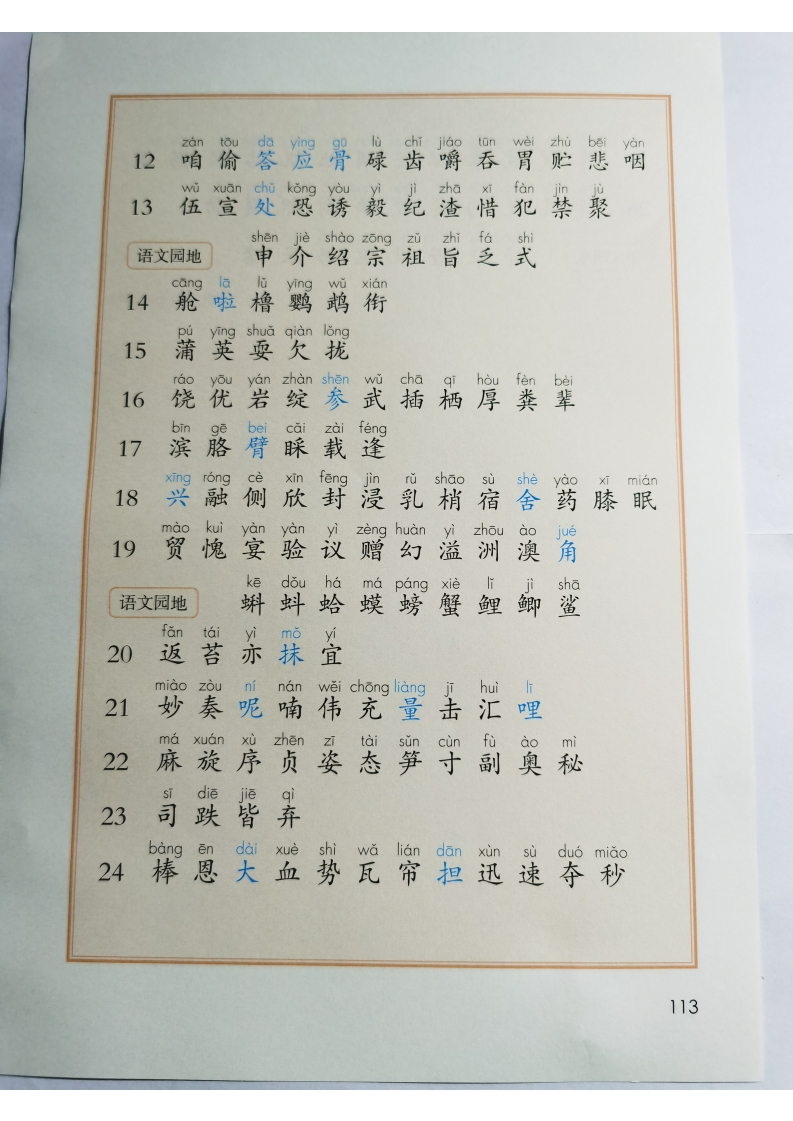 zán tōu dā yìng gū lù chǐ jiáo tūn wèi zhù bēi yàn
12 咱 偷 答 应 骨 碌 齿 嚼 吞 胃 贮 悲 咽
wǔ xuān chǔ kǒng yòu yì jì zhā xī fàn jìn jù
13 伍 宣 处 恐 诱 毅 纪 渣 惜 犯 禁 聚
shēn jiè shào zōng zǔ zhǐ fá shì
语文园地 申 介 绍 宗 祖 旨 乏 式
cāng lā lǔ yīng wǔ xián
14 舱 啦 橹 鹦 鹉 衔
pú yīng shuǎ qiàn lǒng
15 蒲 英 耍 欠 拢
ráo yōu yán zhàn shēn wǔ chā qī hòu fèn bèi
16 饶 优 岩 绽 参 武 插 栖 厚 粪 辈
bīn gē bei cǎi zài féng
17 滨 胳 臂 睬 载 逢
xīng róng cè xīn fēng jìn rǔ shāo sù shè yào xī mián
18 兴 融 侧 欣 封 浸 乳 梢 宿 舍 药 膝 眠
mào kuì yàn yàn yì zèng huàn yì zhōu ào jué
19 贸 愧 宴 验 议 赠 幻 溢 洲 澳 角
kē dǒu há má páng xiè lǐ jì shā
语文园地 蝌 蚪 蛤 蟆 螃 蟹 鲤 鲫 鲨
fǎn tái yì mǒ yí
20 返 苔 亦 抹 宜
miào zòu ní nán wěi chōng liàng jī huì lī
21 妙 奏 呢 喃 伟 充 量 击 汇 哩
má xuán xù zhēn zī tài sǔn cùn fù ào mì
22 麻 旋 序 贞 姿 态 笋 寸 副 奥 秘
sī diē jiē qì
23 司 跌 皆 弃
bàng ēn dài xuè shì wǎ lián dān xùn sù duó miǎo
24 棒 恩 大 血 势 瓦 帘 担 迅 速 夺 秒
113